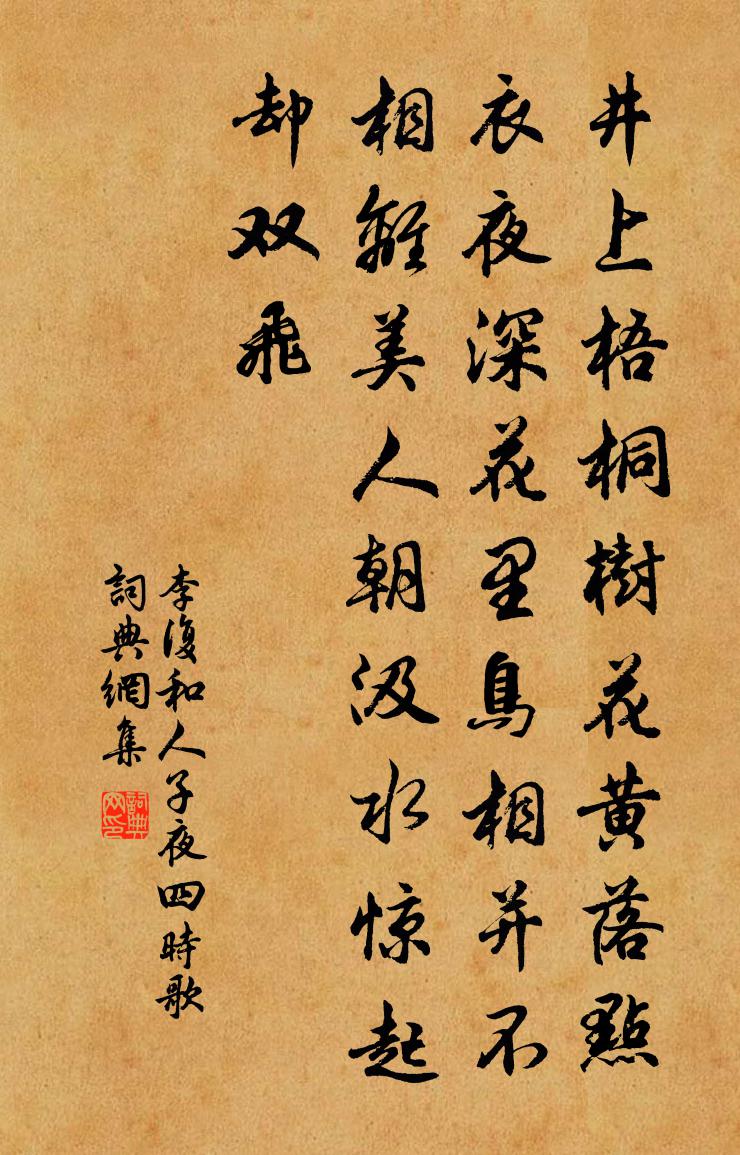 井上梧桐樹花黄落點
衣夜深花里鳥相并不
相離美人朝汲水惊起
却双飛
李復和人子夜四時歌
詞典網集
詞典网印